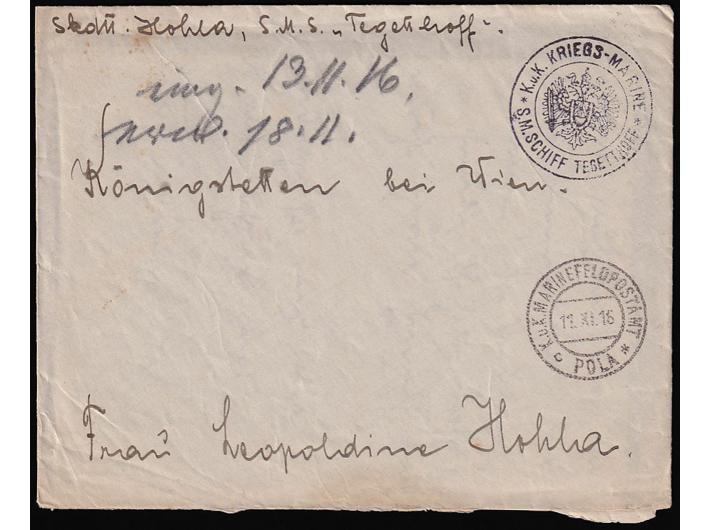 Skdtt: Hohla, S.M.S. „Tegetthoff“.
K.u.K. KRIEGS-MARINE
* S.M.SCHIFF TEGETTHOFF *
13.11.16.
18.11.
Königstetten bei Wien.
K.u.K. MARINEFELDPOSTAMT
11.XI.16
c POLA *
Frau Leopoldine Hohla.